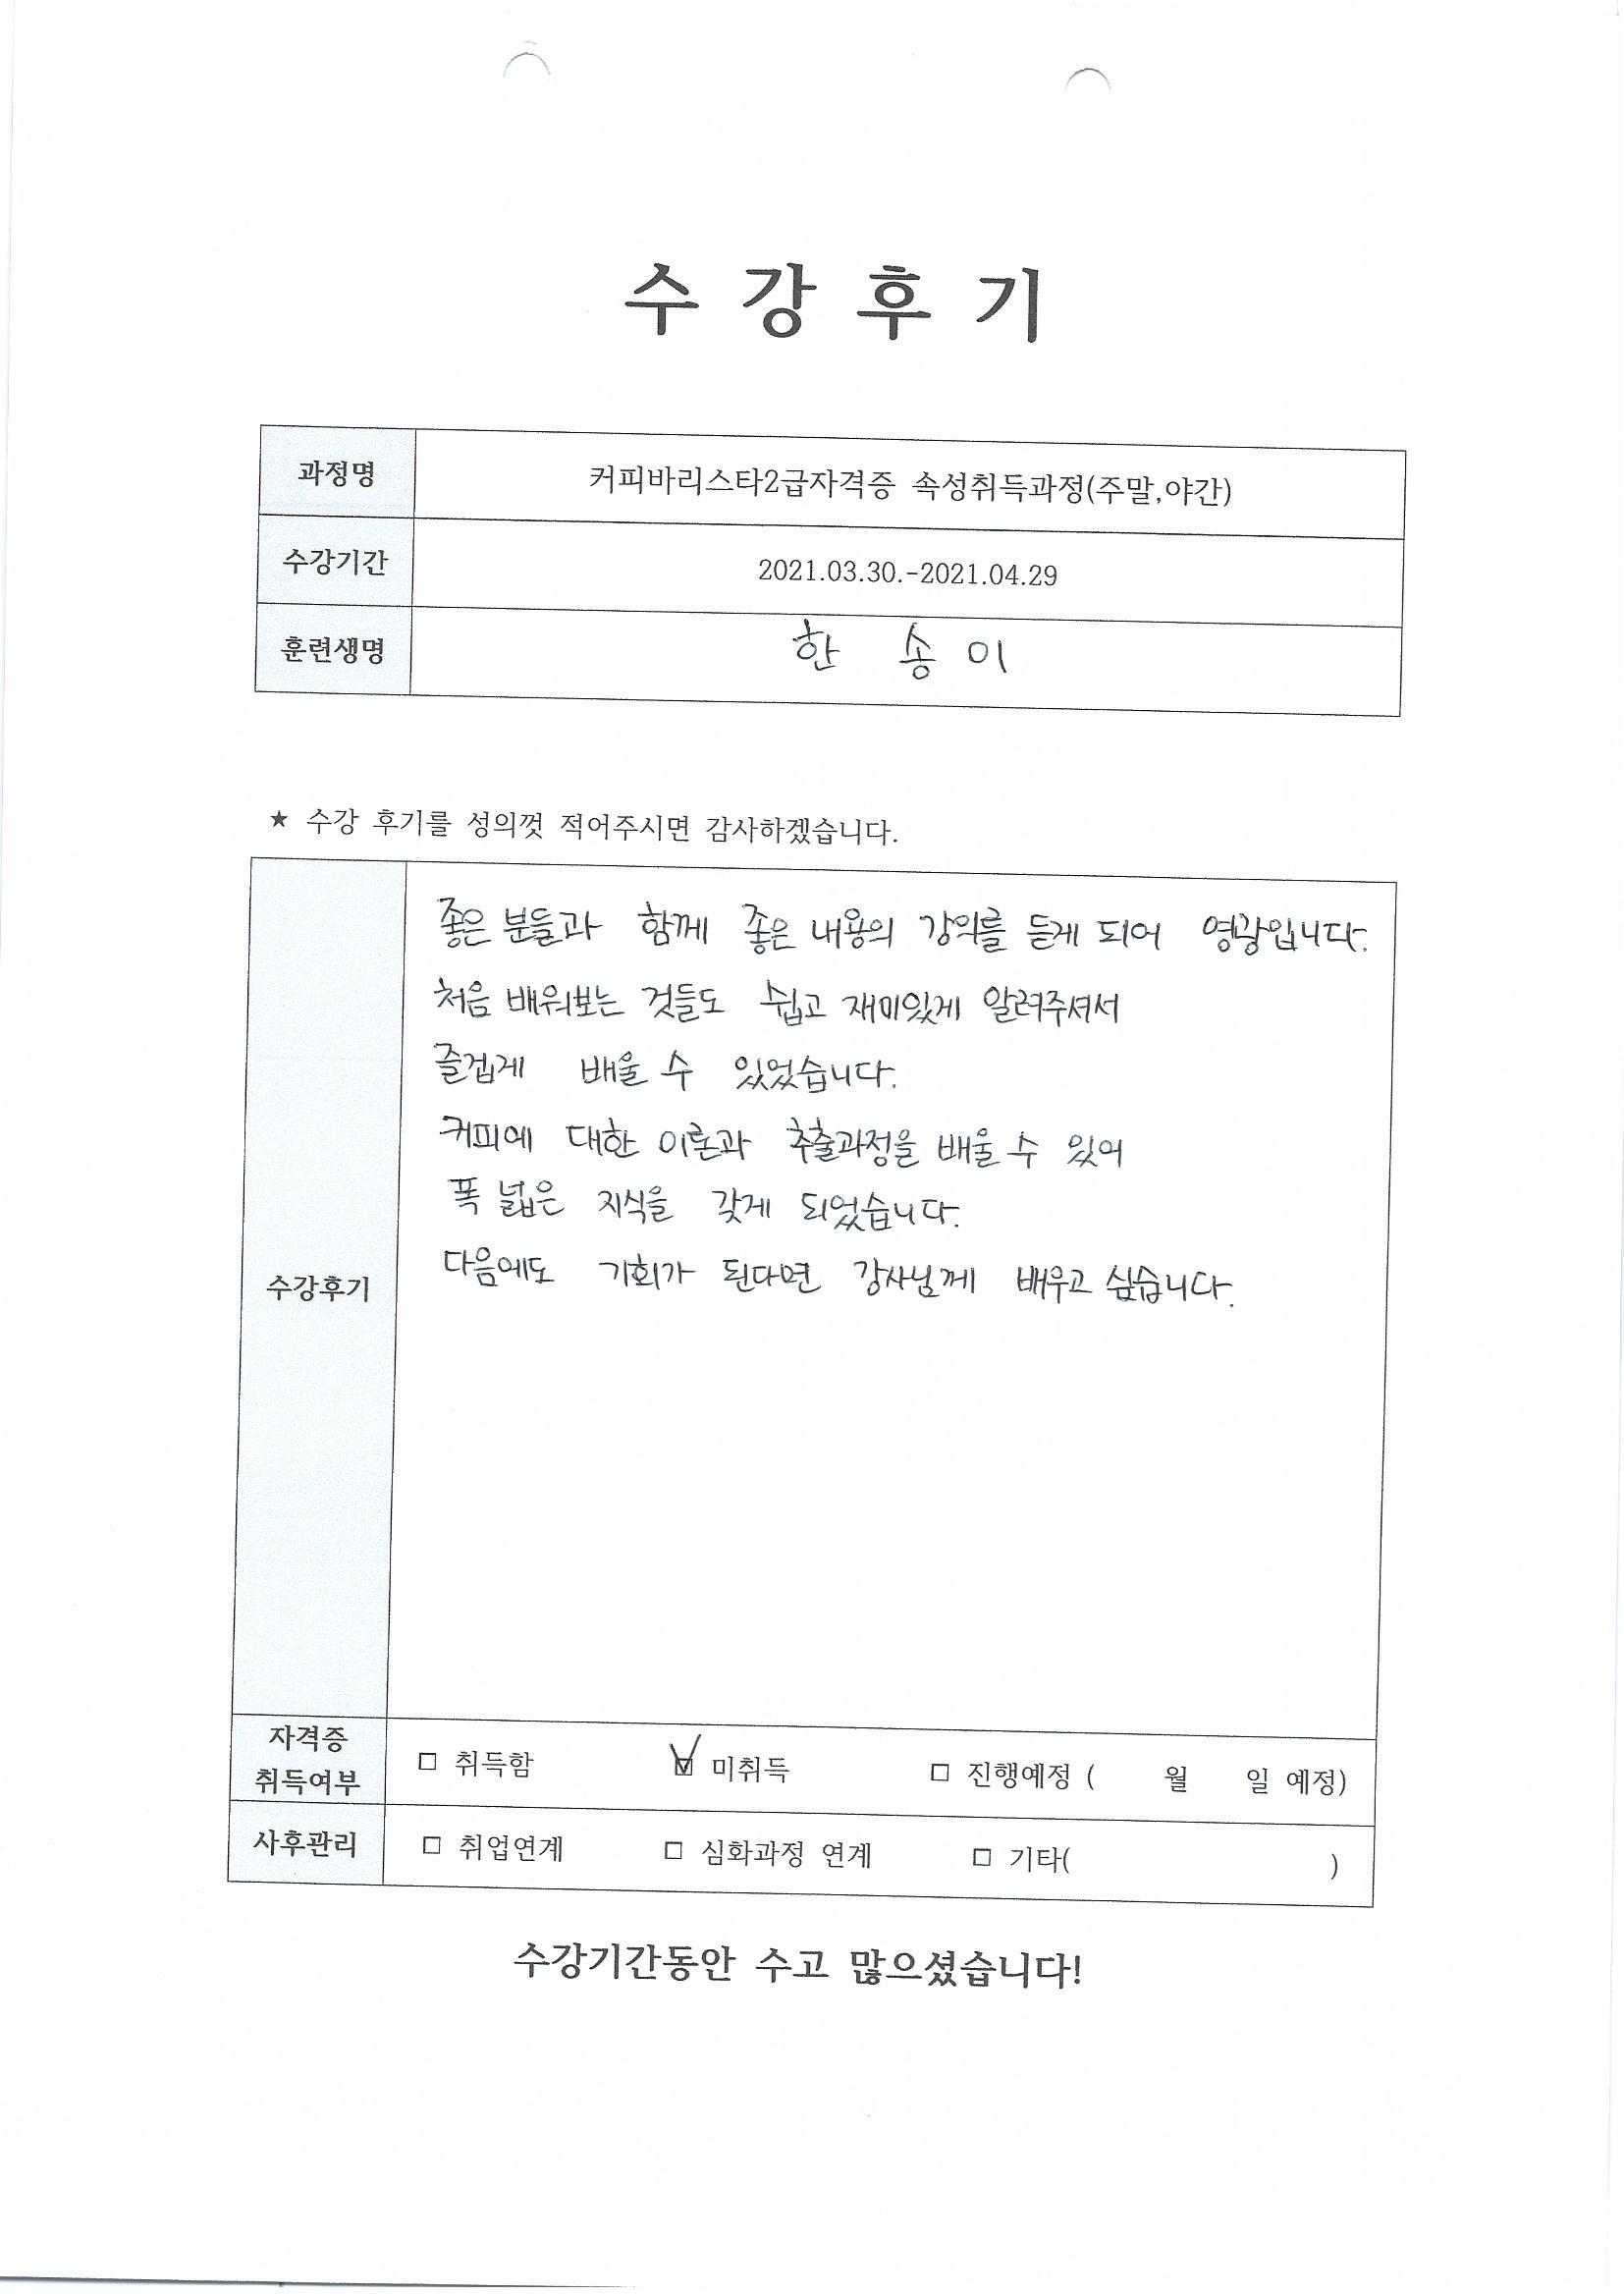 수 강 후 기
과정명 커피바리스타2급자격증 속성취득과정(주말,야간)
수강기간 2021.03.30.-2021.04.29
훈련생명 한 송 이
★ 수강 후기를 성의껏 적어주시면 감사하겠습니다.
좋은 분들과 함께 좋은 내용의 강의를 듣게 되어 영광입니다.
처음 배워보는 것들도 쉽고 재미있게 알려주셔서
즐겁게 배울 수 있었습니다.
커피에 대한 이론과 추출과정을 배울 수 있어
폭 넓은 지식을 갖게 되었습니다.
다음에도 기회가 된다면 강사님께 배우고 싶습니다.
수강후기
자격증
취득여부 □ 취득함 ☑ 미취득 □ 진행예정 ( 월 일 예정)
사후관리 □ 취업연계 □ 심화과정 연계 □ 기타( )
수강기간동안 수고 많으셨습니다!